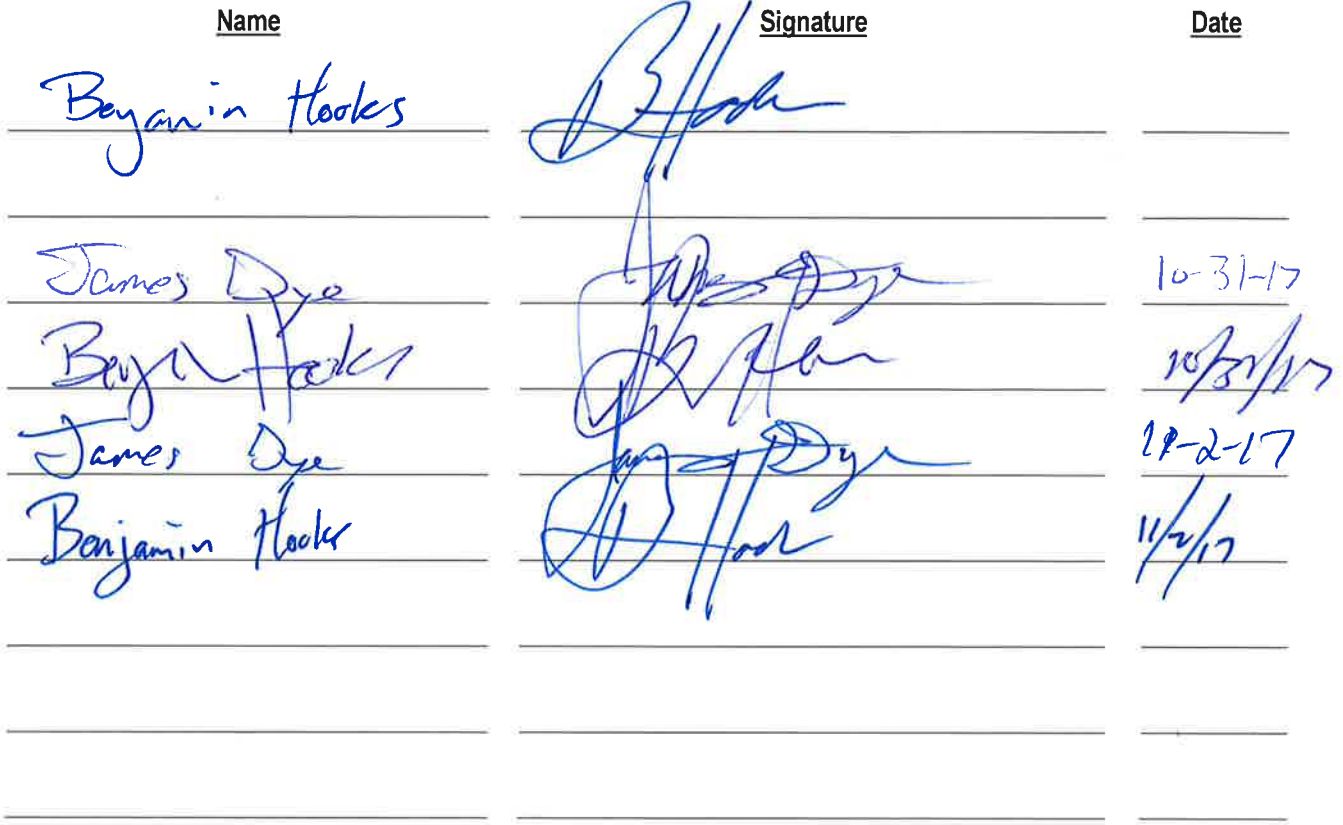 Name Signature Date
Benjamin Hooks B Hook
James Dye James Dye 10-31-17
Benjn Hooks 10/31/17
James Dye James Dye 11-2-17
Benjamin Hooks B Hook 11/2/17